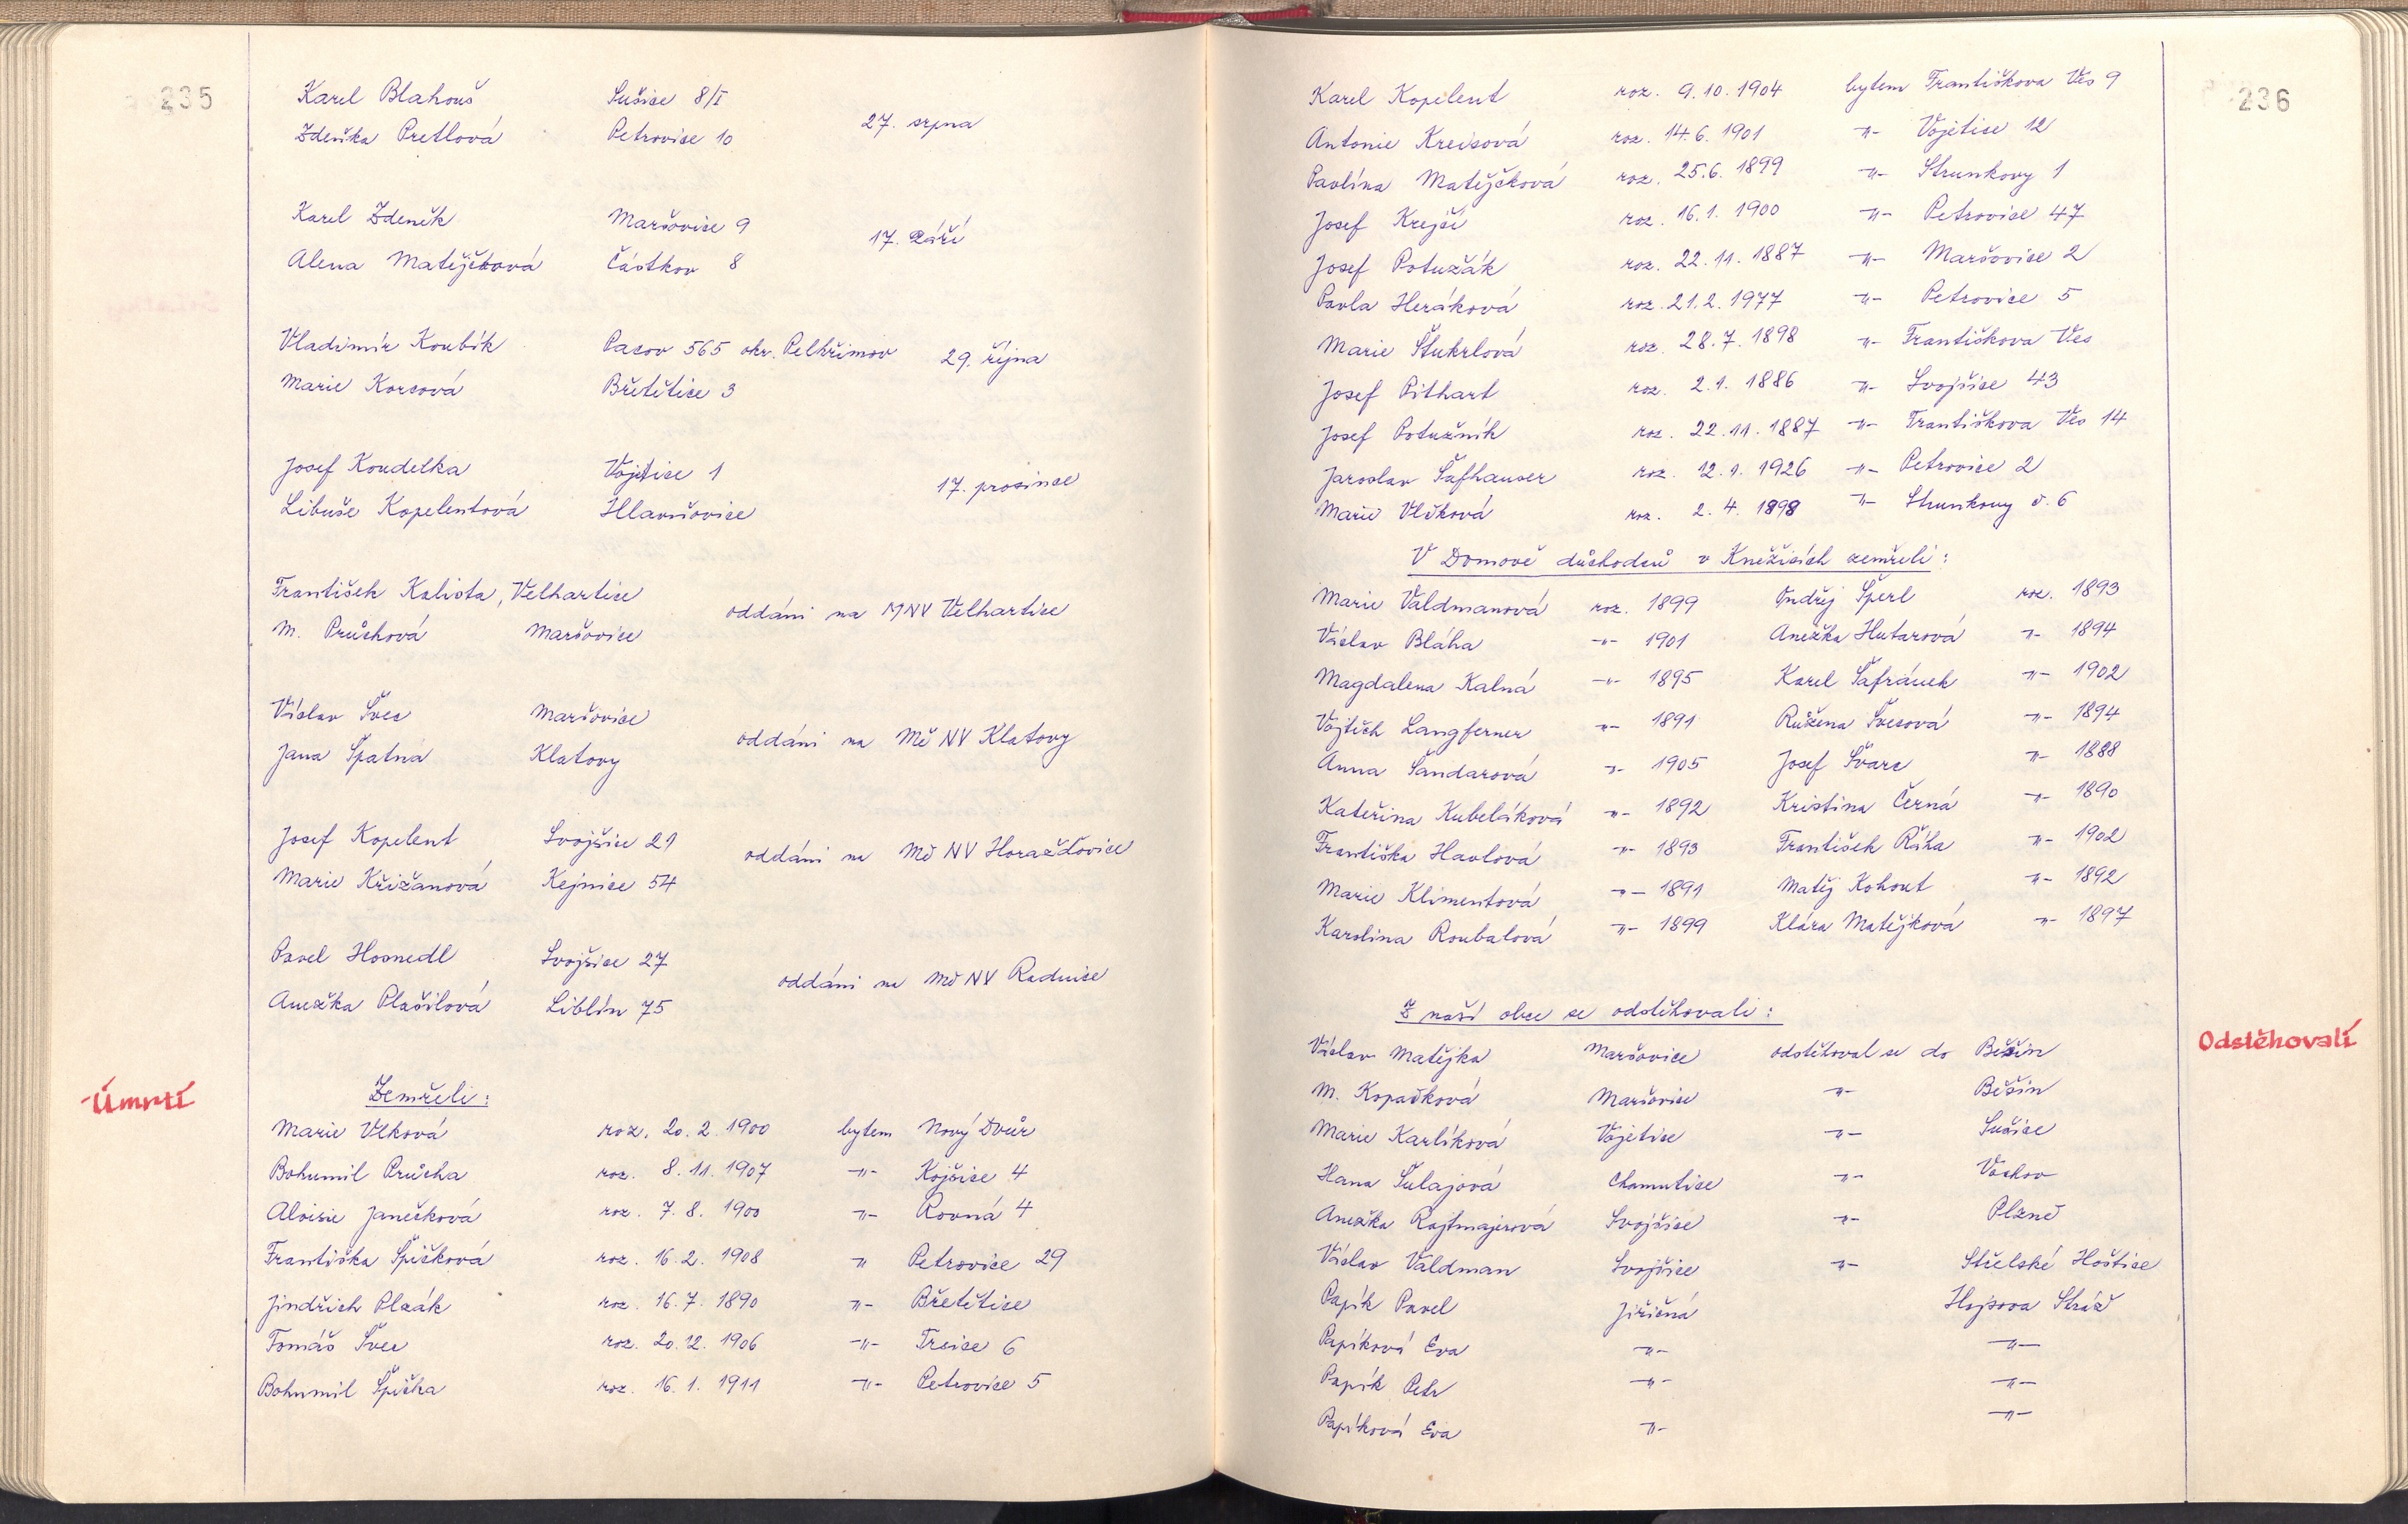 235
Karel Blahouš Sušice 8/I
27. srpna
Zdeňka Pretlová Petrovice 10
Karel Zdeněk Maršovice 9
17. září
Alena Matějčková Částkov 8
Vladimír Koubík Pacov 565 okr. Pelhřimov 29. října
Marie Korcová Břetětice 3
Josef Koudelka Vojetice 1
17. prosince
Libuše Kopelentová Hlavňovice
František Kalista, Velhartice
oddáni na MNV Velhartice
M. Průchová Maršovice
Václav Švec Maršovice
oddáni na Mě NV Klatovy
Jana Špatná Klatovy
Josef Kopelent Svojšice 21
oddáni na Mě NV Horažďovice
Marie Křižanová Kejnice 54
Pavel Hosnedl Svojšice 27
oddáni na Mě NV Radnice
Anežka Plašilová Liblín 75
Úmrtí
Zemřeli:
Marie Vlková roz. 20. 2. 1900 bytem Nový Dvůr
Bohumil Průcha roz. 8. 11. 1907 -"- Kojšice 4
Aloisie Janečková roz. 7. 8. 1900 -"- Rovná 4
Františka Špičková roz. 16. 2. 1908 -"- Petrovice 29
Jindřich Plzák roz. 16. 7. 1890 -"- Břetětice
Tomáš Švec roz. 20. 12. 1906 -"- Trsice 6
Bohumil Špička roz. 16. 1. 1911 -"- Petrovice 5
236
Karel Kopelent roz. 9. 10. 1904 bytem Františkova Ves 9
Antonie Kreisová roz. 14. 6. 1901 -"- Vojetice 12
Pavlína Matějčková roz. 25. 6. 1899 -"- Strunkovy 1
Josef Krejčí roz. 16. 1. 1900 -"- Petrovice 47
Josef Potužák roz. 22. 11. 1887 -"- Maršovice 2
Pavla Heráková roz. 21. 2. 1977 -"- Petrovice 5
Marie Štukrlová roz. 28. 7. 1898 -"- Františkova Ves
Josef Pithart roz. 2. 1. 1886 -"- Svojšice 43
Josef Potužník roz. 22. 11. 1887 -"- Františkova Ves 14
Jaroslav Šafhauser roz. 12. 1. 1926 -"- Petrovice 2
Marie Vlčková roz. 2. 4. 1898 -"- Strunkovy č. 6
V Domově důchodců v Kněžicích zemřeli:
Marie Valdmanová roz. 1899 Ondřej Šperl roz. 1893
Václav Bláha -"- 1901 Anežka Hutarová -"- 1894
Magdalena Kalná -"- 1895 Karel Šafránek -"- 1902
Vojtěch Langferner -"- 1891 Růžena Švecová -"- 1894
Anna Šandarová -"- 1905 Josef Švarc -"- 1888
Kateřina Kubeláková -"- 1892 Kristina Černá -"- 1890
Františka Havlová -"- 1893 František Říha -"- 1902
Marie Klimentová -"- 1891 Matěj Kohout -"- 1892
Karolina Roubalová -"- 1899 Klára Matějková -"- 1897
Z naší obce se odstěhovali:
Odstěhovalí
Václav Matějka Maršovice odstěhoval se do Běšin
M. Kopačková Maršovice -"- Běšin
Marie Karlíková Vojetice -"- Sušice
Hana Šulajová Chamutice -"- Vackov
Anežka Rajtmajerová Svojšice -"- Plzně
Václav Valdman Svojšice -"- Střelské Hoštice
Papík Pavel Jiřičná Hojsova Stráž
Papíková Eva -"- -"-
Papík Petr -"- -"-
Papíková Eva -"- -"-